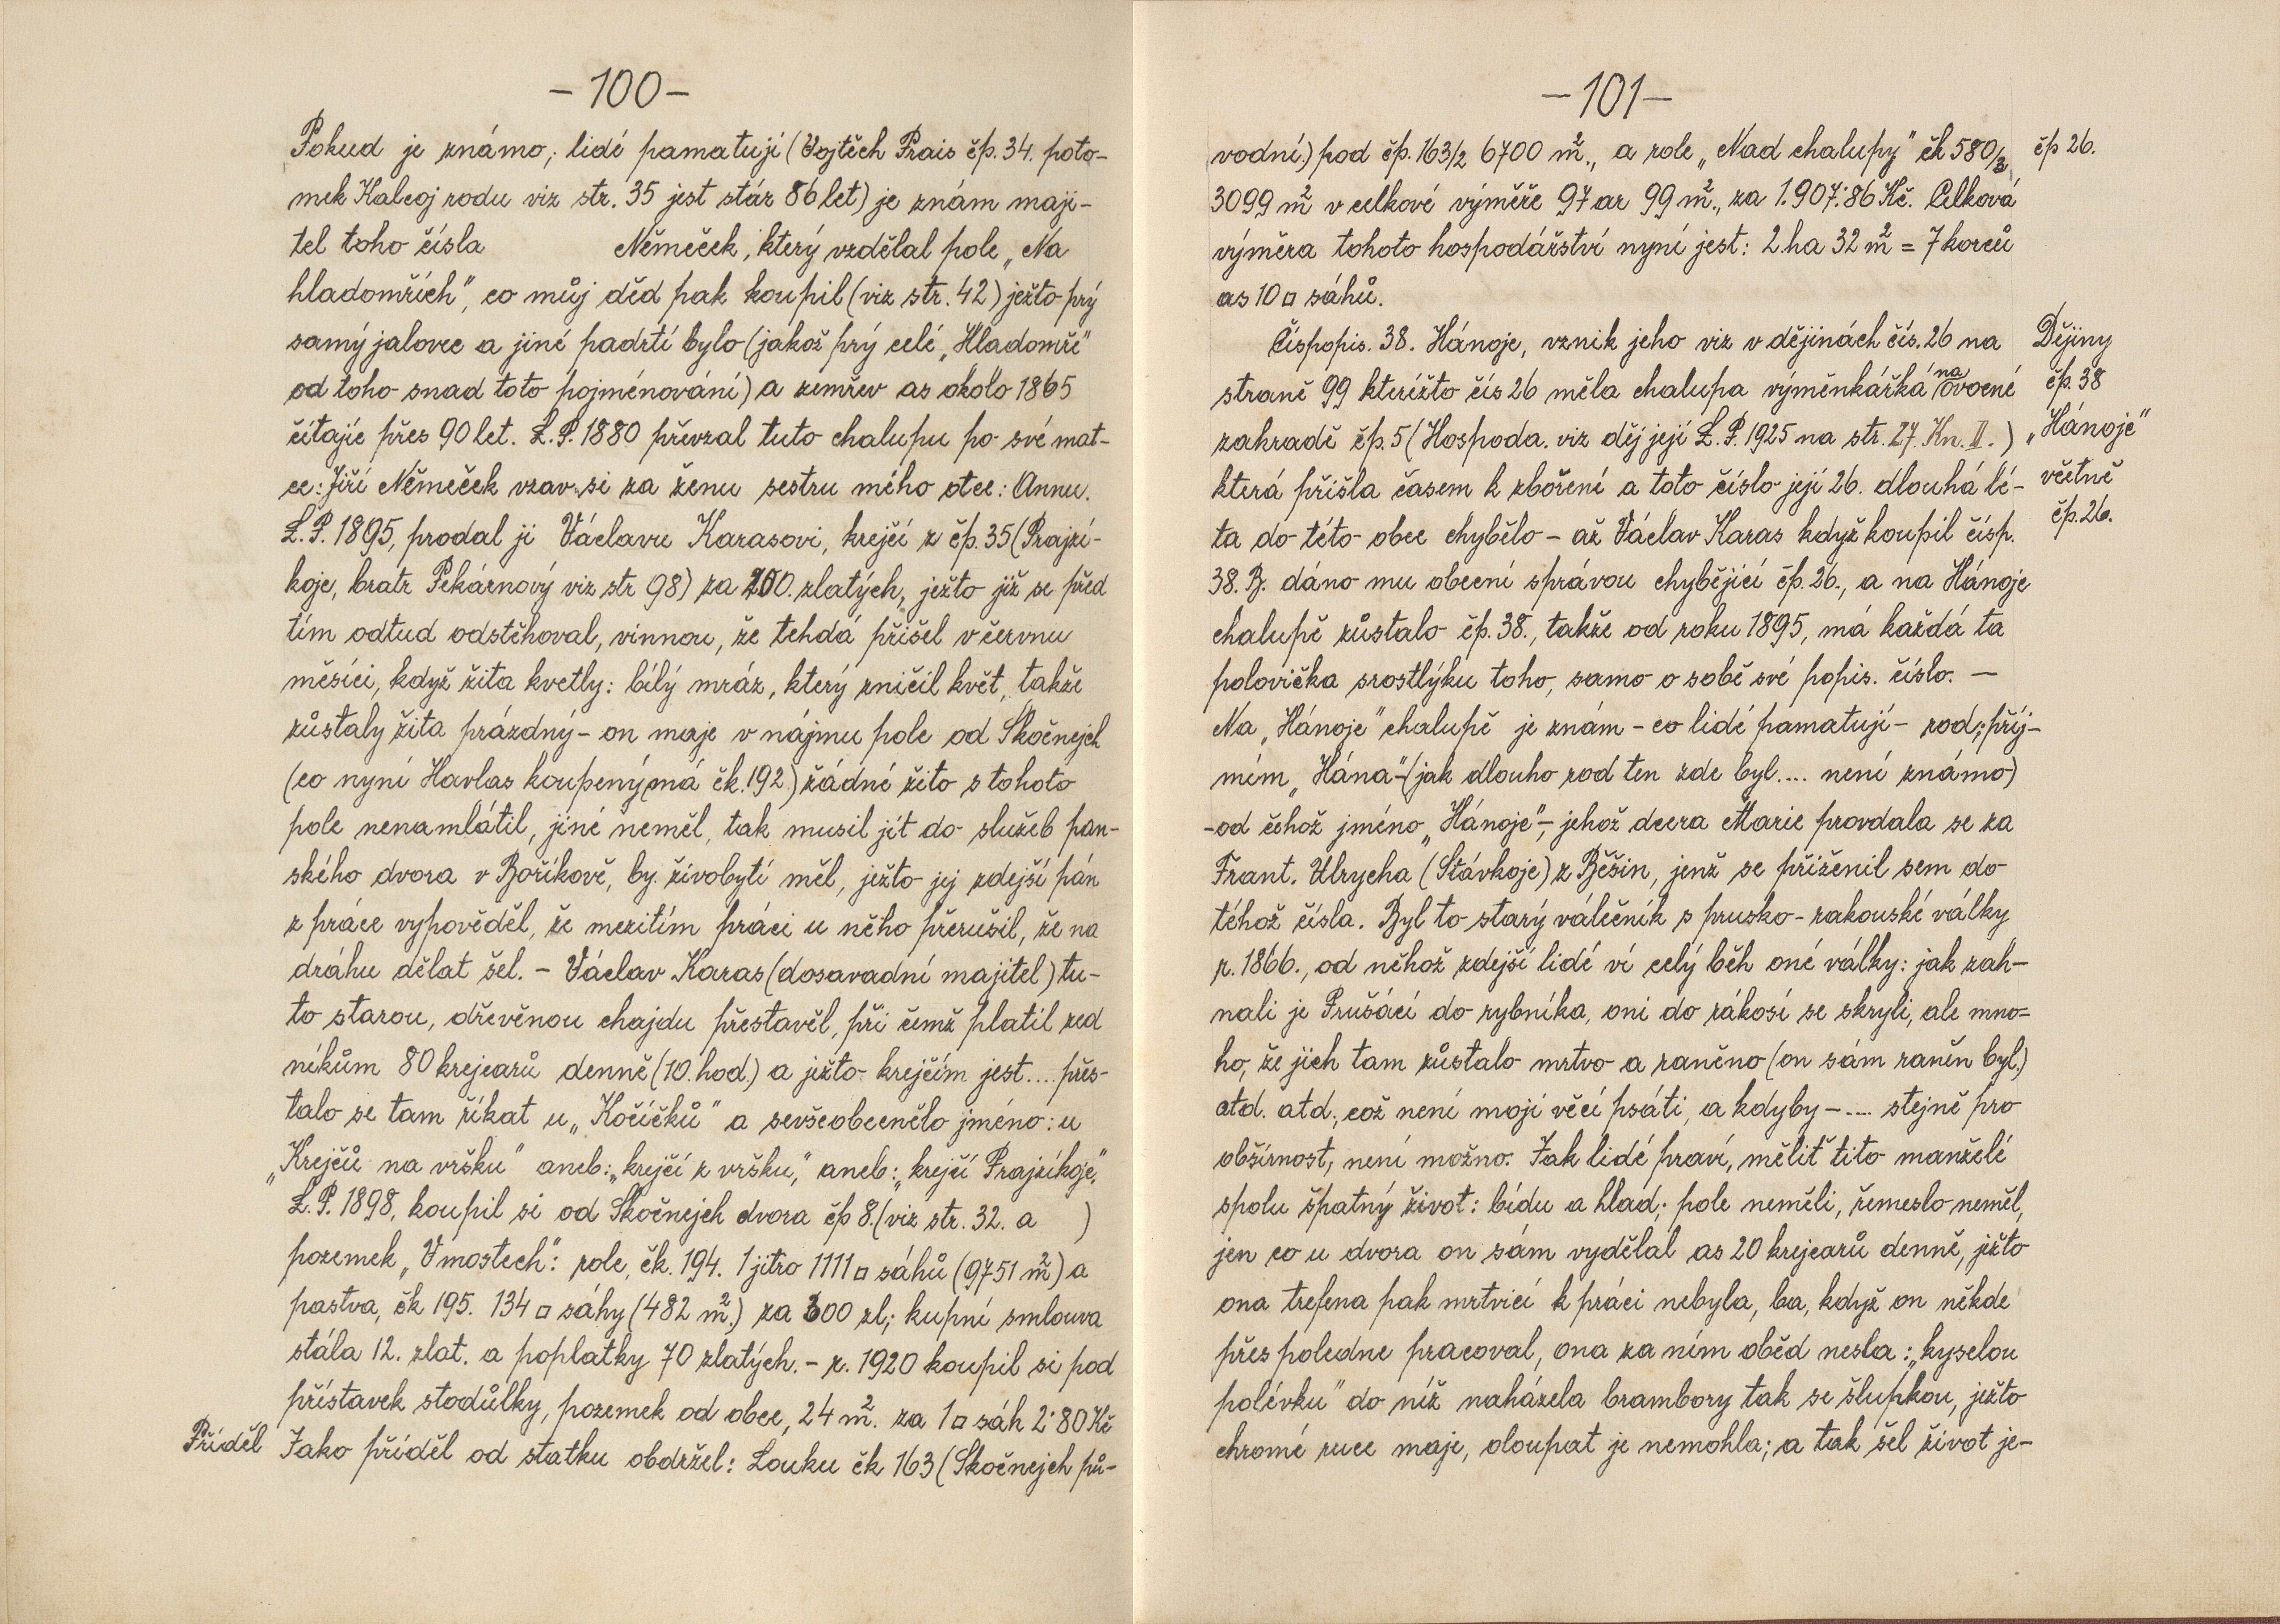 -100-
Pokud je známo; lidé pamatují (Vojtěch Prais čp. 34. poto-
mek Kalcoj rodu viz str. 35 jest stár 86 let) je znám maji-
tel toho čísla Němeček, který vzdělal pole „Na
hladomřích", co můj děd pak koupil (viz str. 42) ježto prý
samý jalovec a jiné padrtí bylo (jakož prý celé „Hladomře"
od toho snad toto pojménování) a zemřev as okolo 1865
čítajíc přes 90 let. L.P. 1880 převzal tuto chalupu po své mat-
ce: Jiří Němeček vzav si za ženu sestru mého otce: Annu.
L.P. 1895, prodal ji Václavu Karasovi, krejčí z čp. 35 (Prajzí-
koje, bratr Pekárnový viz str 98) za 200. zlatých, ježto již se před
tím odtud odstěhoval, vinnou, že tehdá přišel v červnu
měsíci, když žita kvetly: bílý mráz, který zničil květ, takže
zůstaly žita prázdný - on maje v nájmu pole od Skočnejch
(co nyní Havlas koupený má čk. 192.) žádné žito s tohoto
pole nenamlátil, jiné neměl, tak musil jít do služeb pan-
ského dvora v Bořikově, by. živobytí měl, ježto jej zdejší pán
z práce vypověděl, že mezitím práci u něho přerušil, že na
dráhu dělat šel. - Václav Karas (dosavadní majitel) tu-
to starou, dřevěnou chajdu přestavěl, při čemž platil zed
níkům 80 krejcarů denně (10. hod.) a ježto krejčím jest.... přes-
talo se tam říkat u „Kočíčků" a sevšeobecnělo jméno: u
„Krejčů na vršku" aneb: „krejčí z vršku," aneb: „krejčí Prajzíkoje."
L.P. 1898, koupil si od Skočnejch dvora čp 8. (viz str. 32. a )
pozemek „V mostech": role, čk. 194. 1 jitro 1111 □ sáhů (9751 m²) a
pastva, čk 195. 134 □ sáhy (482 m².) za 300 zl; kupní smlouva
stála 12. zlat. a poplatky 70 zlatých. - r. 1920 koupil si pod
přístavek stodůlky, pozemek od obce, 24 m². za 1 □ sáh 2·80 Kč
Příděl Jako příděl od statku obdržel: Louku čk 163 (Skočnejch pů-
-101-
vodní.) pod čp. 163/2 6700 m²., a role „Nad chalupy" čk 580/3 čp 26.
3099 m² v celkové výměře 97 ar 99 m²., za 1.907·86 Kč. Celková
výměra tohoto hospodářství nyní jest: 2. ha 32 m² = 7 korců
as 10 □ sáhů.
Číspopis. 38. Hánoje, vznik jeho viz v dějinách čís. 26 na Dějiny
straně 99 kterížto čís 26 měla chalupa výměnkářká na ovocné čp. 38
zahradě čp. 5 (Hospoda. viz děj její L.P. 1925 na str. 27. Kn. II.) „Hánoje"
která přišla časem k zboření a toto číslo její 26. dlouhá lé- včetně
ta do této obce chybělo - až Václav Karas když koupil čísp. čp. 26.
38. B. dáno mu obecní správou chybějící čp. 26., a na Hánoje
chalupě zůstalo čp. 38., takže od roku 1895, má každá ta
polovička srostlýku toho, samo o sobě své popis. číslo. —
Na „Hánoje" chalupě je znám - co lidé pamatují - rod; příj-
mím „Hána" - (jak dlouho rod ten zde byl.... není známo)
- od čehož jméno „Hánoje" -, jehož dcera Marie provdala se za
Frant. Ulrycha (Stávkoje) z Běšin, jenž se přiženil sem do
téhož čísla. Byl to starý válečník s prusko-rakouské války
r. 1866., od něhož zdejší lidé ví celý běh oné války: jak zah-
nali je Prušáci do rybníka, oni do rákosí se skryli, ale mno=
ho, že jich tam zůstalo mrtvo a raněno (on sám raněn byl.)
atd. atd., což není mojí věcí psáti, a kdyby - .... stejně pro
obšírnost, není možno. Jak lidé praví, měliť tito manželé
spolu špatný život: bídu a hlad; pole neměli, řemeslo neměl,
jen co u dvora on sám vydělal as 20 krejcarů denně, ježto
ona trefena pak mrtvicí k práci nebyla, ba, když on někde
přes poledne pracoval, ona za ním oběd nesla: „kyselou
polévku" do níž naházela brambory tak se šlupkou, ježto
chromé ruce maje, oloupat je nemohla; a tak šel život je-